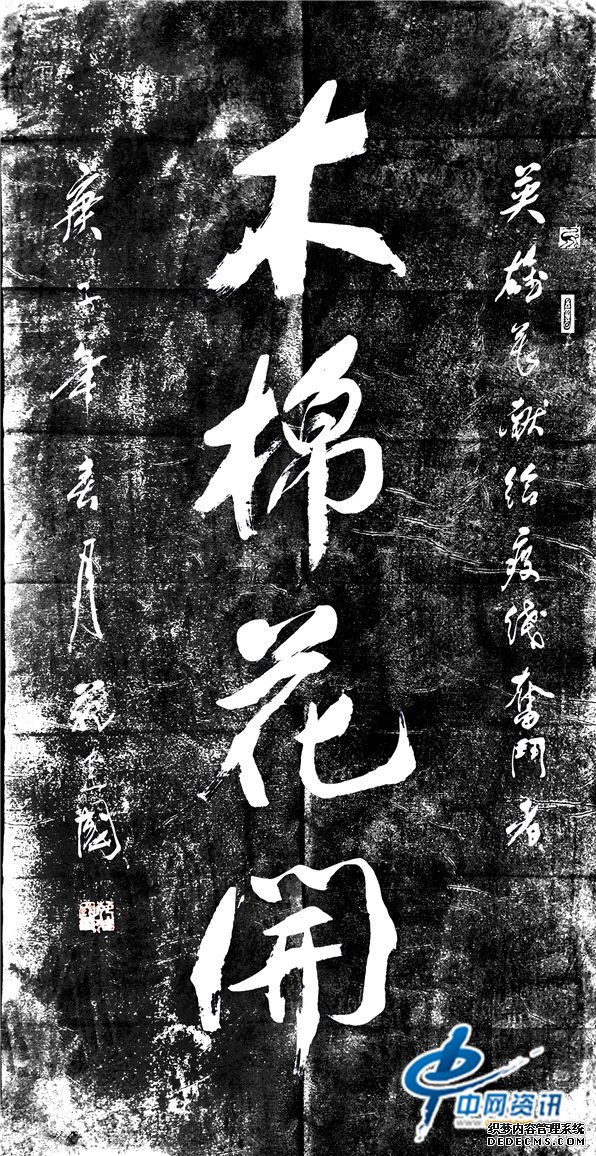 英雄花献给疫线奮鬥者
木棉花開
庚子年春月 國
中网资讯
织梦内容管理系统
DEDECMS.COM